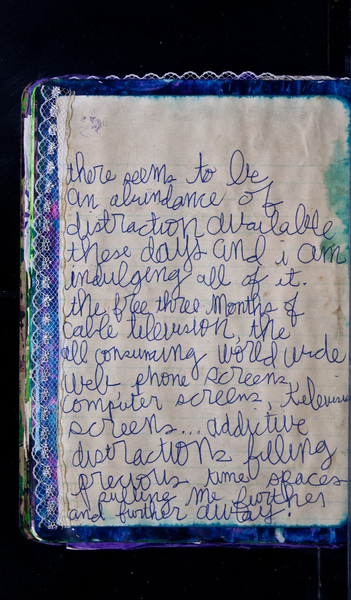 there seems to be
an abundance of
distraction available
these days and i am
indulging all of it.
the free three months of
cable television, the
all consuming world wide
web, phone screens,
computer screens, television
screens... addictive
distractions filling
precious time spaces
pulling me further
and further away.